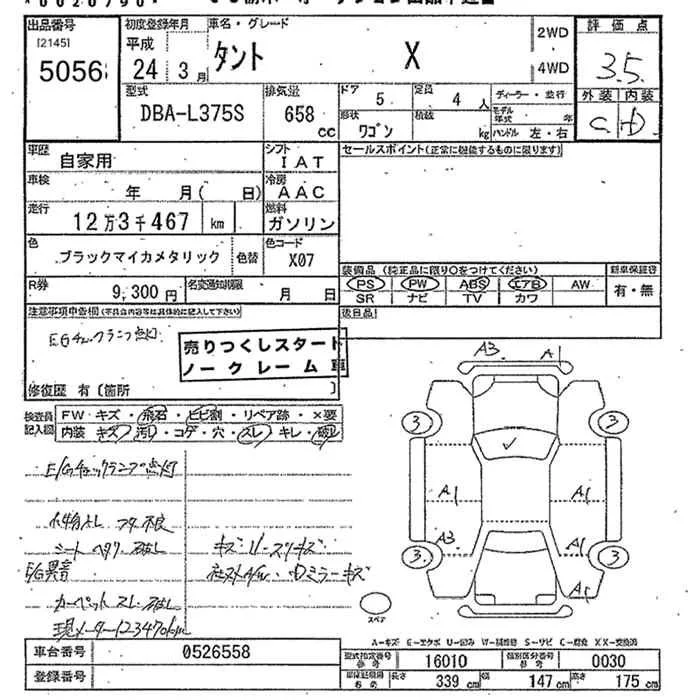 出品番号
[2145]
5056
初度登録年月
平成
24 3月
車名・グレード
タント X
2WD
4WD
評価点
3.5
外装 内装
C D
型式
DBA-L375S
排気量
658 cc
ドア
5
定員
4 人
形状
ワゴン
積載
kg
ディーラー・並行
モデル年式 年
ハンドル 左・右
車歴
自家用
シフト
IAT
セールスポイント(正常に機能するものに限ります)
車検
年 月( 日)
冷房
AAC
走行
12万3千467 km
燃料
ガソリン
色
ブラックマイカメタリック
色替
色コード
X07
R券
9,300円
名変通知期限
月 日
装備品(純正品に限り○をつけてください)
PS PW ABS エアB AW
SR ナビ TV カワ
新車保証書
有・無
後日品
注意事項申告欄(不具合内容等は具体的に記入して下さい)
EGチェックランプ点灯
売りつくしスタート
ノークレーム車
修復歴 有〔箇所 〕
検査員記入欄
FW キズ・飛石・ヒビ割・リペア跡・×要
内装 キズ・汚り・コゲ・穴・スレ・キレ・破レ
E/Gチェックランプ点灯
小物入レ フタ不良
シート ヘタリ
キズ U・スリキズ
E/G異音
ミラーキズ
カーペット スレ
現メーター123470km
A3 A1
3 3
A1 A1
A3 A1
3 3
A1
スペア
A-キズ E-エクボ U-凹み W-補修跡 S-サビ C-腐食 XX-交換済
車台番号
0526558
登録番号
型式指定番号 参考
16010
類別区分番号 参考
0030
長さ 339 cm
幅 147 cm
高さ 175 cm